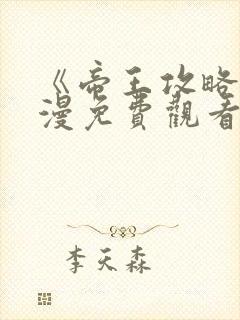 《帝王攻略
漫免費觀看
李天森